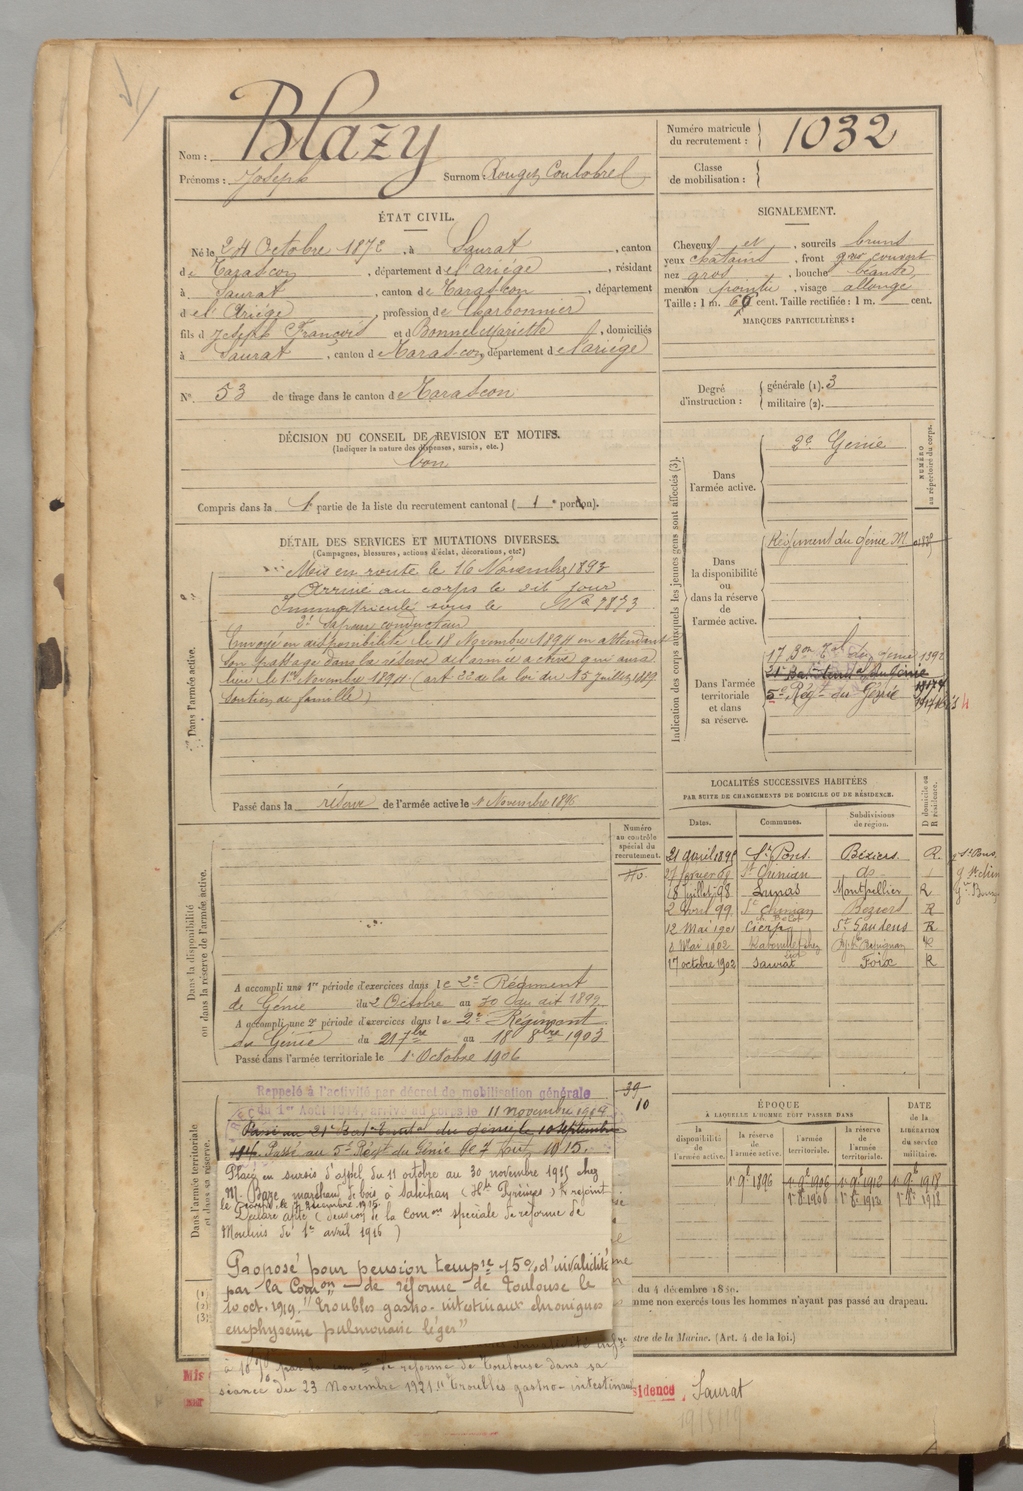 Nom : Blazy
Prénoms : Joseph Surnom : Rougé Coulobrel
Numéro matricule
du recrutement : 1032
Classe
de mobilisation :
ÉTAT CIVIL.
Né le 24 Octobre 1872, à Saurat, canton
de Tarascon, département de l'Ariège, résidant
à Saurat, canton de Tarascon, département
de l'Ariège, profession de Charbonnier
fils d Joseph François et d Bonnel Mariette, domiciliés
à Saurat, canton de Tarascon, département de l'Ariège
N° 53 de tirage dans le canton de Tarascon
DÉCISION DU CONSEIL DE REVISION ET MOTIFS.
(Indiquer la nature des dispenses, sursis, etc.)
bon
Compris dans la 1 partie de la liste du recrutement cantonal ( 1 e portion).
SIGNALEMENT.
Cheveux et, sourcils bruns
yeux chatains, front couvert
nez gros, bouche béante,
menton pointu, visage allongé
Taille : 1 m. cent. Taille rectifiée : 1 m. cent.
MARQUES PARTICULIÈRES :
Degré
d'instruction :
générale (1). 3
militaire (2).
Indication des corps auxquels les jeunes gens sont affectés (3).
NUMÉRO
au répertoire du corps.
Dans
l'armée active.
2e Génie
Dans
la disponibilité
ou
dans la réserve
de
l'armée active.
Régiment du génie M
Dans l'armée
territoriale
et dans
sa réserve.
17 Bon Tal du Génie 1392
21e Bat Territal du Génie
5e Régt du Génie
DÉTAIL DES SERVICES ET MUTATIONS DIVERSES.
(Campagnes, blessures, actions d'éclat, décorations, etc.)
Dans l'armée active.
Mis en route le 16 Novembre 1893
Arrivé au corps le dit jour
Immatriculé sous le No 7873
2e Sapeur conducteur
Envoyé en disponibilité le 18 Novembre 1894 en attendant
son passage dans la réserve de l'armée active qui aura
lieu le 1er Novembre 1896 (art 22 de la loi du 15 Juillet 1889
soutien de famille)
Passé dans la réserve de l'armée active le 1 Novembre 1896
Numéro
au contrôle
spécial du
recrutement.
Dans la disponibilité
ou dans la réserve de l'armée active.
A accompli une 1re période d'exercices dans le 2e Régiment
de Génie du 2 Octobre au
A accompli une 2e période d'exercices dans le 2e Régiment
du Génie du 21 7bre au 18 8bre 1903
Passé dans l'armée territoriale le 1 Octobre 1906
LOCALITÉS SUCCESSIVES HABITÉES
PAR SUITE DE CHANGEMENTS DE DOMICILE OU DE RÉSIDENCE.
Dates. Communes. Subdivisions
de région. D domicile ou
R résidence.
21 avril 1895 St Pons Béziers R
St Chinian do
18 Juillet 98 Lunas Montpellier R
2 99 St Chinian Béziers R
12 Mai 1901 Cierp St Gaudens R
Mai 1902 Perpignan R
17 octobre 1902 Saurat Foix R
Dans l'armée territoriale
et dans sa réserve.
Rappelé à l'activité par décret de mobilisation générale
du 1er Août 1914, arrivé au corps le 11 novembre 1914
39
10
Passé au 21e Bat Territal du génie le 10 septembre
Passé au 5e Régt du Génie le 7 1915.
Placé en sursis d'appel du 11 octobre au 30 novembre 1915 chez
M. Baze, marchand de bois à Saléchan (Htes Pyrénées) rejoint
le 2 décembre 1915
Déclaré apte (décision de la Comon spéciale de réforme de
Moulins du 1er avril 1916)
Proposé pour pension tempre 15% d'invalidité
par la Comon de réforme de Toulouse le
10 oct. 1919. "Troubles gastro-intestinaux chroniques
emphysème pulmonaire léger"
de réforme de Toulouse dans sa
séance du 23 Novembre 1921 "Troubles gastro-intestinaux
ÉPOQUE
À LAQUELLE L'HOMME DOIT PASSER DANS
DATE
de la
LIBÉRATION
du service
militaire.
la
disponibilité
de
l'armée active.
la réserve
de
l'armée active.
l'armée
territoriale.
la réserve
de
l'armée
territoriale.
1er 9e 1896 1er 9e 1906 1er 9e 1912 1er 9e 1918
du 4 décembre 18
mme non exercés tous les hommes n'ayant pas passé au drapeau.
stre de la Marine. (Art. 4 de la loi.)
sidence, Saurat